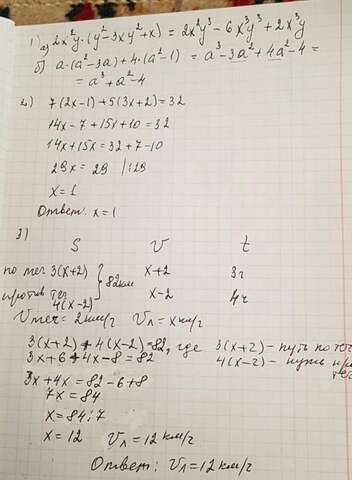 1) а) 2x²y·(y²-3xy²+x) = 2x²y³-6x³y³+2x³y
б) a·(a²-3a)+4·(a²-1) = a³-3a²+4a²-4 =
= a³+a²-4
2) 7(2x-1)+5(3x+2)=32
14x-7+15x+10=32
14x+15x=32+7-10
29x = 29 |:29
x=1
Ответ. x=1
3)
S V t
по теч 3(x+2) x+2 3ч
82км
против теч 4(x-2) x-2 4ч
Vтеч = 2км/ч Vл = x км/ч
3(x+2)+4(x-2)=82, где 3(x+2)-путь по теч
3x+6+4x-8=82 4(x-2)-путь пр
теч
3x+4x=82-6+8
7x=84
x=84:7
x=12 Vл=12 км/ч
Ответ: Vл=12 км/ч